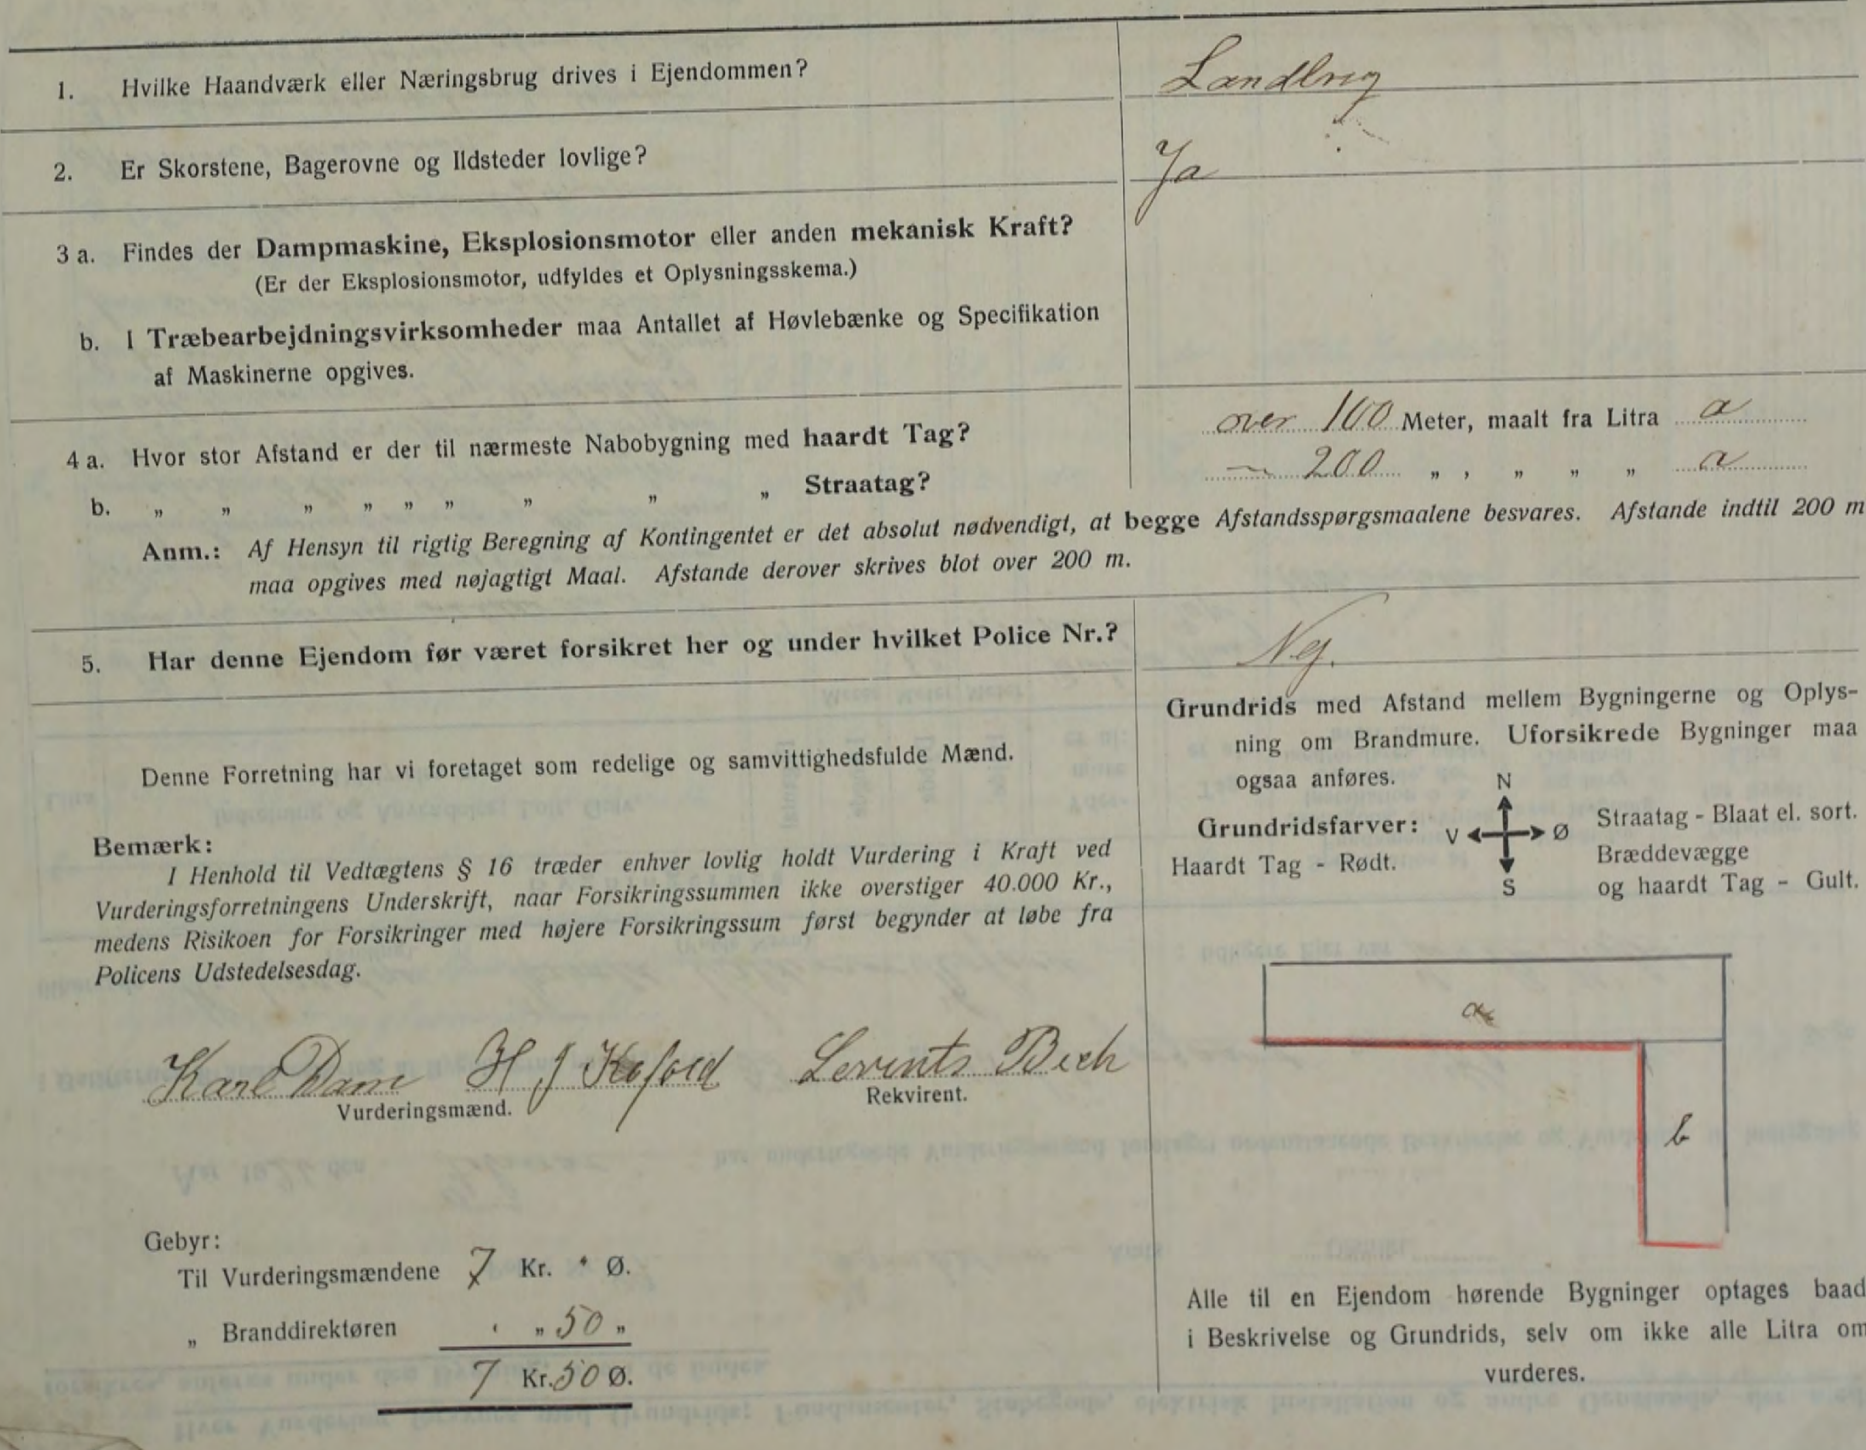 1. Hvilke Haandværk eller Næringsbrug drives i Ejendommen? Landbrug
2. Er Skorstene, Bagerovne og Ildsteder lovlige? Ja
3 a. Findes der Dampmaskine, Eksplosionsmotor eller anden mekanisk Kraft?
(Er der Eksplosionsmotor, udfyldes et Oplysningsskema.)
b. I Træbearbejdningsvirksomheder maa Antallet af Høvlebænke og Specifikation
af Maskinerne opgives.
4 a. Hvor stor Afstand er der til nærmeste Nabobygning med haardt Tag? over 100 Meter, maalt fra Litra a
b. „ „ „ „ „ „ „ „ „ Straatag? — 200 „ , „ „ „ a
Anm.: Af Hensyn til rigtig Beregning af Kontingentet er det absolut nødvendigt, at begge Afstandsspørgsmaalene besvares. Afstande indtil 200 m
maa opgives med nøjagtigt Maal. Afstande derover skrives blot over 200 m.
5. Har denne Ejendom før været forsikret her og under hvilket Police Nr.? Nej.
Denne Forretning har vi foretaget som redelige og samvittighedsfulde Mænd.
Bemærk:
I Henhold til Vedtægtens § 16 træder enhver lovlig holdt Vurdering i Kraft ved
Vurderingsforretningens Underskrift, naar Forsikringssummen ikke overstiger 40.000 Kr.,
medens Risikoen for Forsikringer med højere Forsikringssum først begynder at løbe fra
Policens Udstedelsesdag.
Karl Dam H J Kofoed Lorents Bech
Vurderingsmænd. Rekvirent.
Gebyr:
Til Vurderingsmændene 7 Kr. " Ø.
„ Branddirektøren „ „ 50 „
7 Kr. 50 Ø.
Grundrids med Afstand mellem Bygningerne og Oplys-
ning om Brandmure. Uforsikrede Bygninger maa
ogsaa anføres.
N
Grundridsfarver: V Ø Straatag - Blaat el. sort.
Haardt Tag - Rødt. Bræddevægge
S og haardt Tag - Gult.
a
b
Alle til en Ejendom hørende Bygninger optages baad
i Beskrivelse og Grundrids, selv om ikke alle Litra om
vurderes.